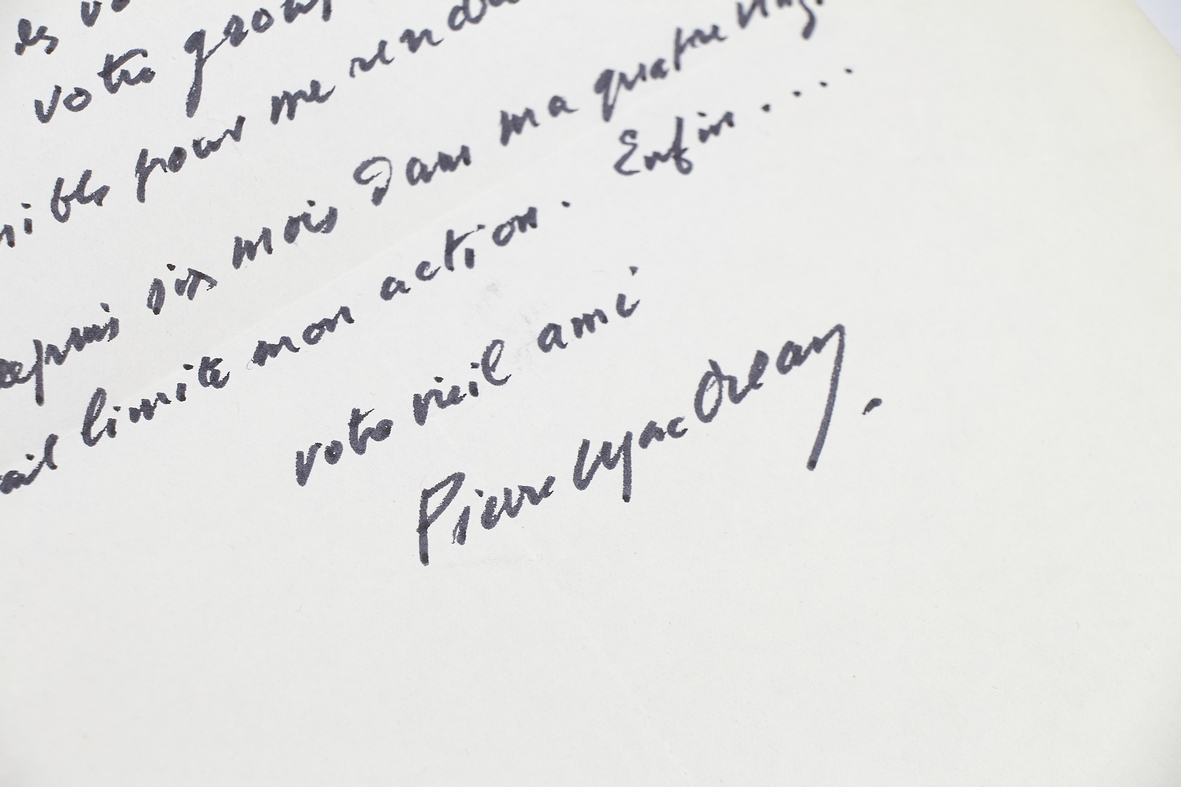 es
votre group
nible pour me rendre
depuis six mois dans ma quatre ving
ail limite mon action. Enfin...
votre vieil ami
Pierre Mac Orlan.